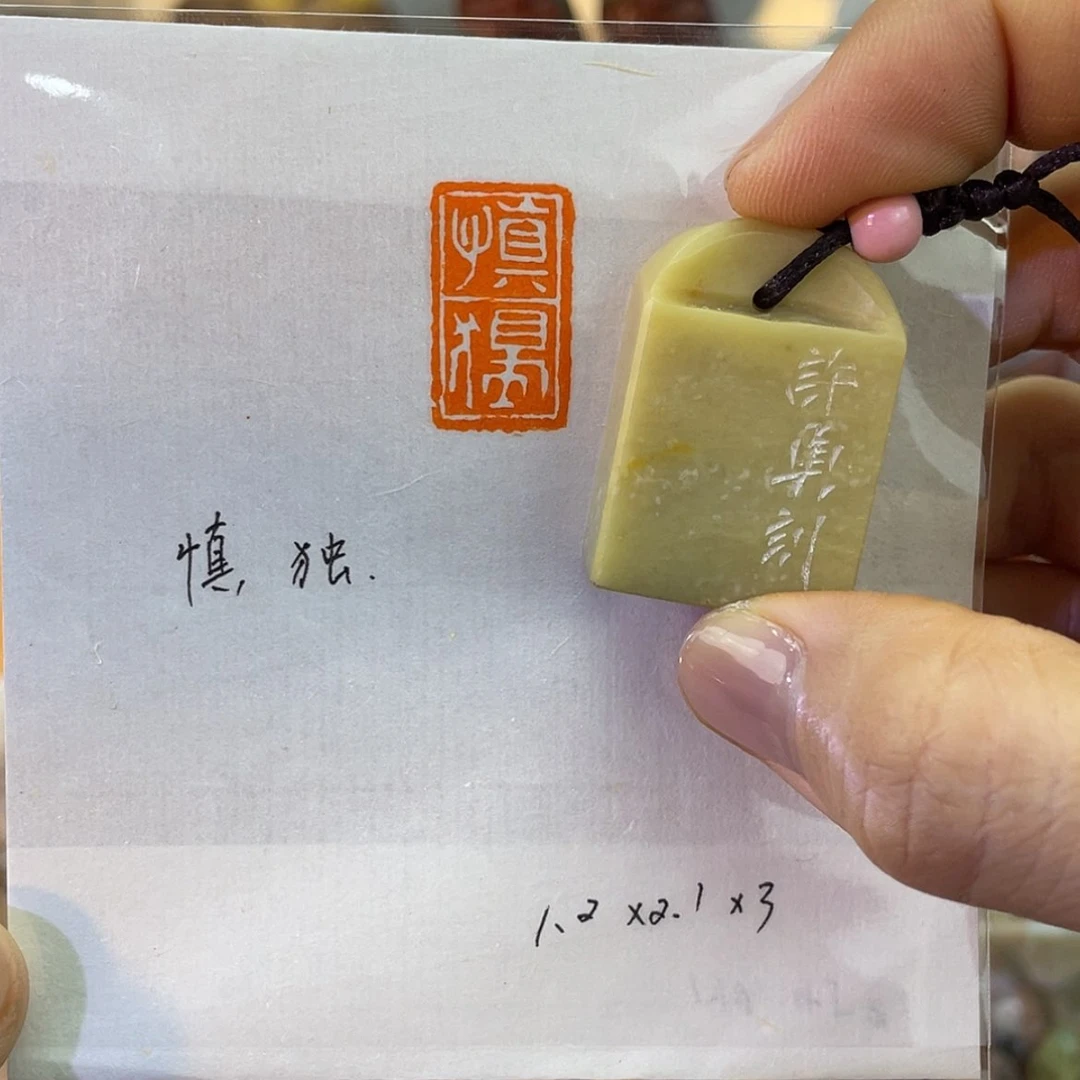 慎獨
許
慎 独.
1.2 x2.1 x3